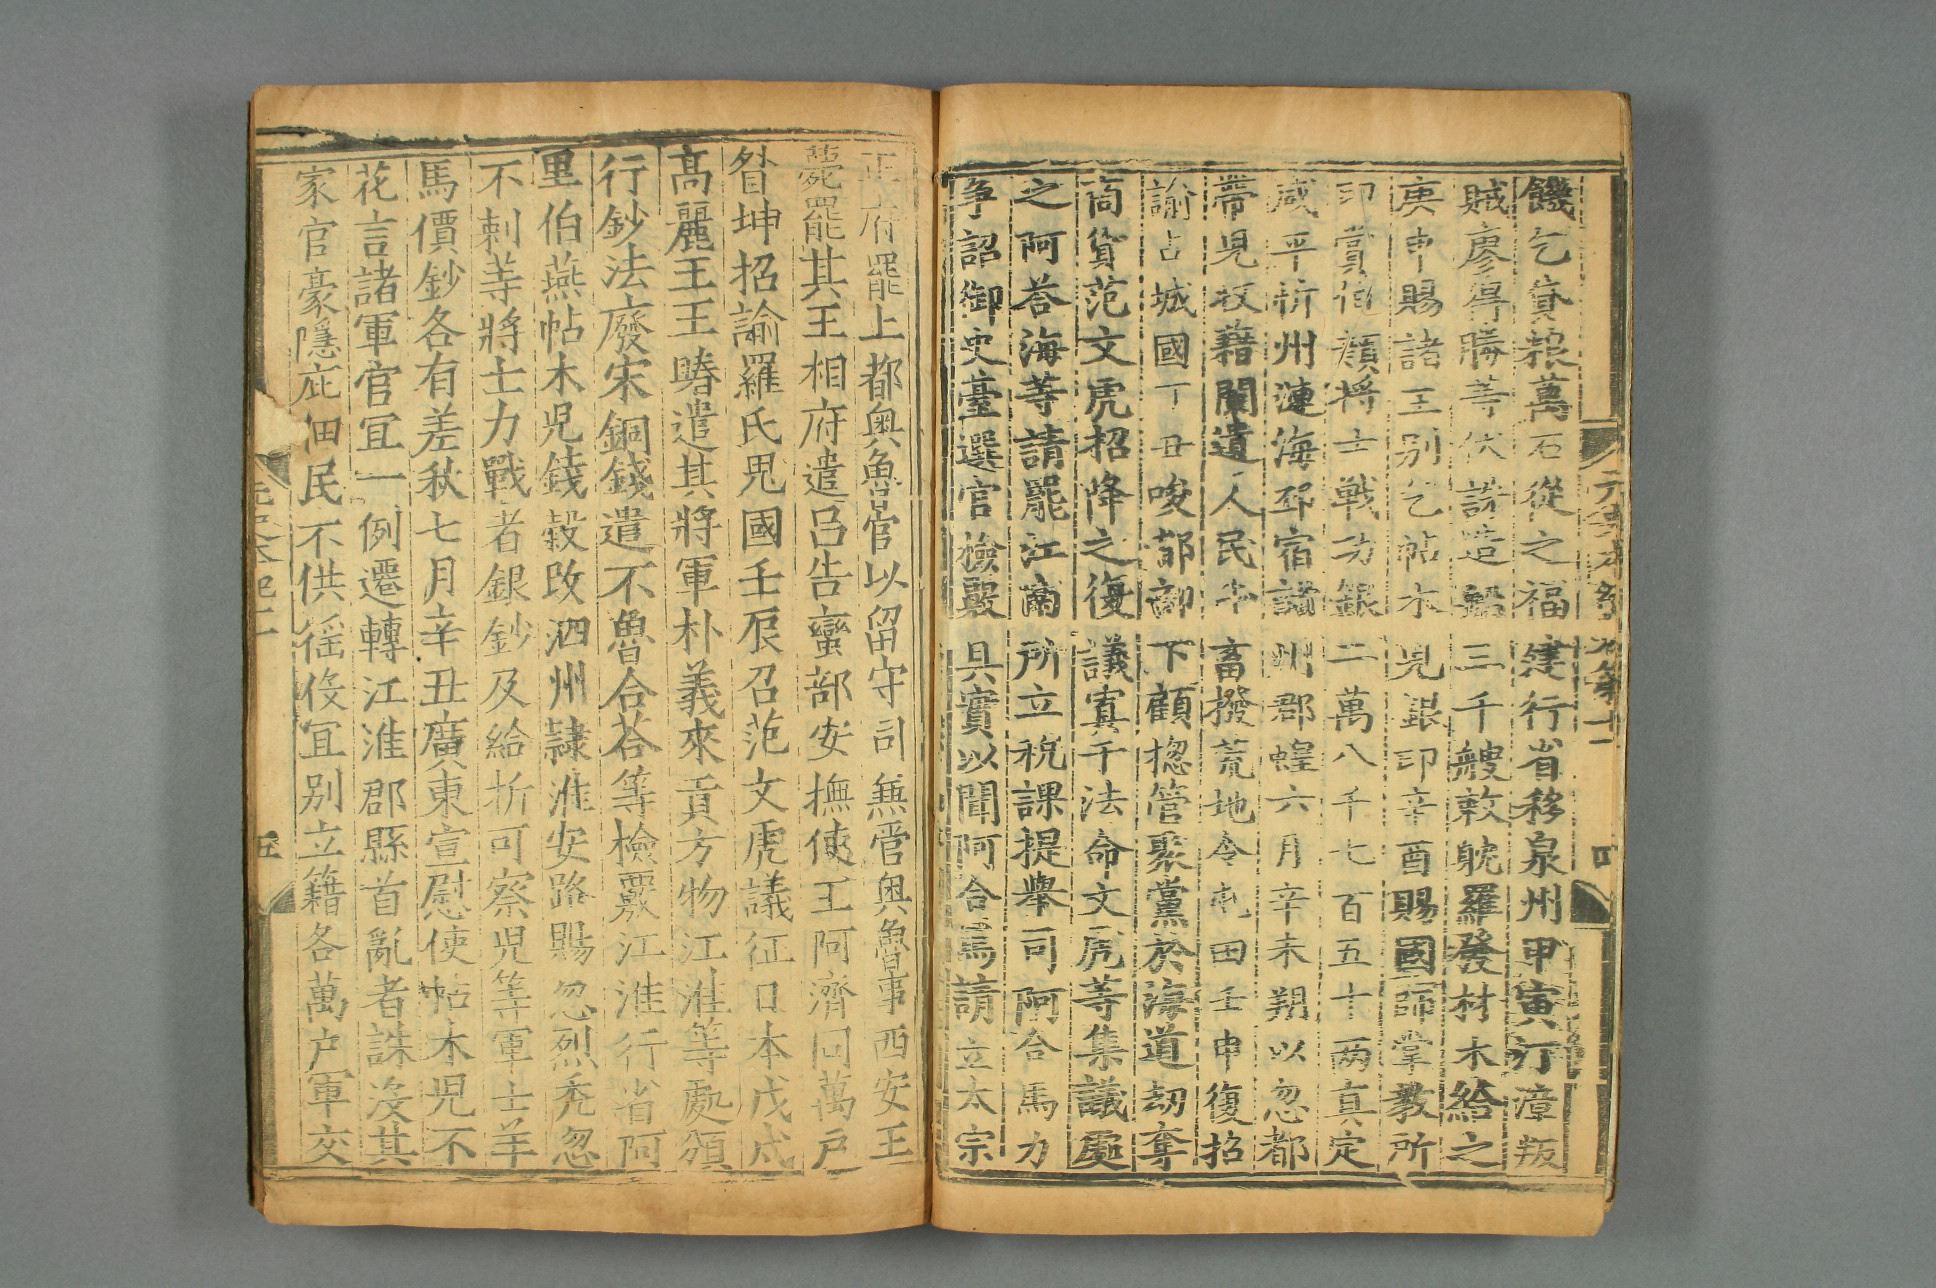 元史本紀卷第十一 四
饑乞貸粮萬石從之福建行省移泉州甲寅汀漳叛
賊廖得勝等伏誅造船三千艘敕耽羅發材木給之
庚申賜諸王别乞帖木兒銀印辛酉賜國師掌教所
印賞伯顔將士戰功銀二萬八千七百五十两真定
咸平忻州漣海邳宿諸州郡蝗六月辛未朔以忽都
帶兒收籍闌遺人民牛畜撥荒地令屯田壬申復招
諭占城國丁丑唆都部下顧揔管聚黨於海道刼奪
商貨范文虎招降之復議寘于法命文虎等集議處
之阿荅海等請罷江南所立税課提舉司阿合馬力
争詔御史臺選官檢覈具實以聞阿合馬請立太宗
正府罷上都奥魯官以留守司兼管奥魯事西安王
薨罷其王相府遣吕告蠻部安撫使王阿濟同萬户
昝坤招諭羅氏鬼國壬辰召范文虎議征日本戊戌
髙麗王王睶遣其將軍朴義來貢方物江淮等處頒
行鈔法廢宋銅錢遣不魯合荅等檢覈江淮行省阿
里伯燕帖木兒錢穀改泗州隷淮安路賜忽烈秃忽
不剌等將士力戰者銀鈔及給折可察児等軍士羊
馬價鈔各有差秋七月辛丑廣東宣慰使帖木兒不
花言諸軍官宜一例遷轉江淮郡縣首亂者誅没其
家官豪隱庇佃民不供徭役宜别立籍各萬户軍交
五